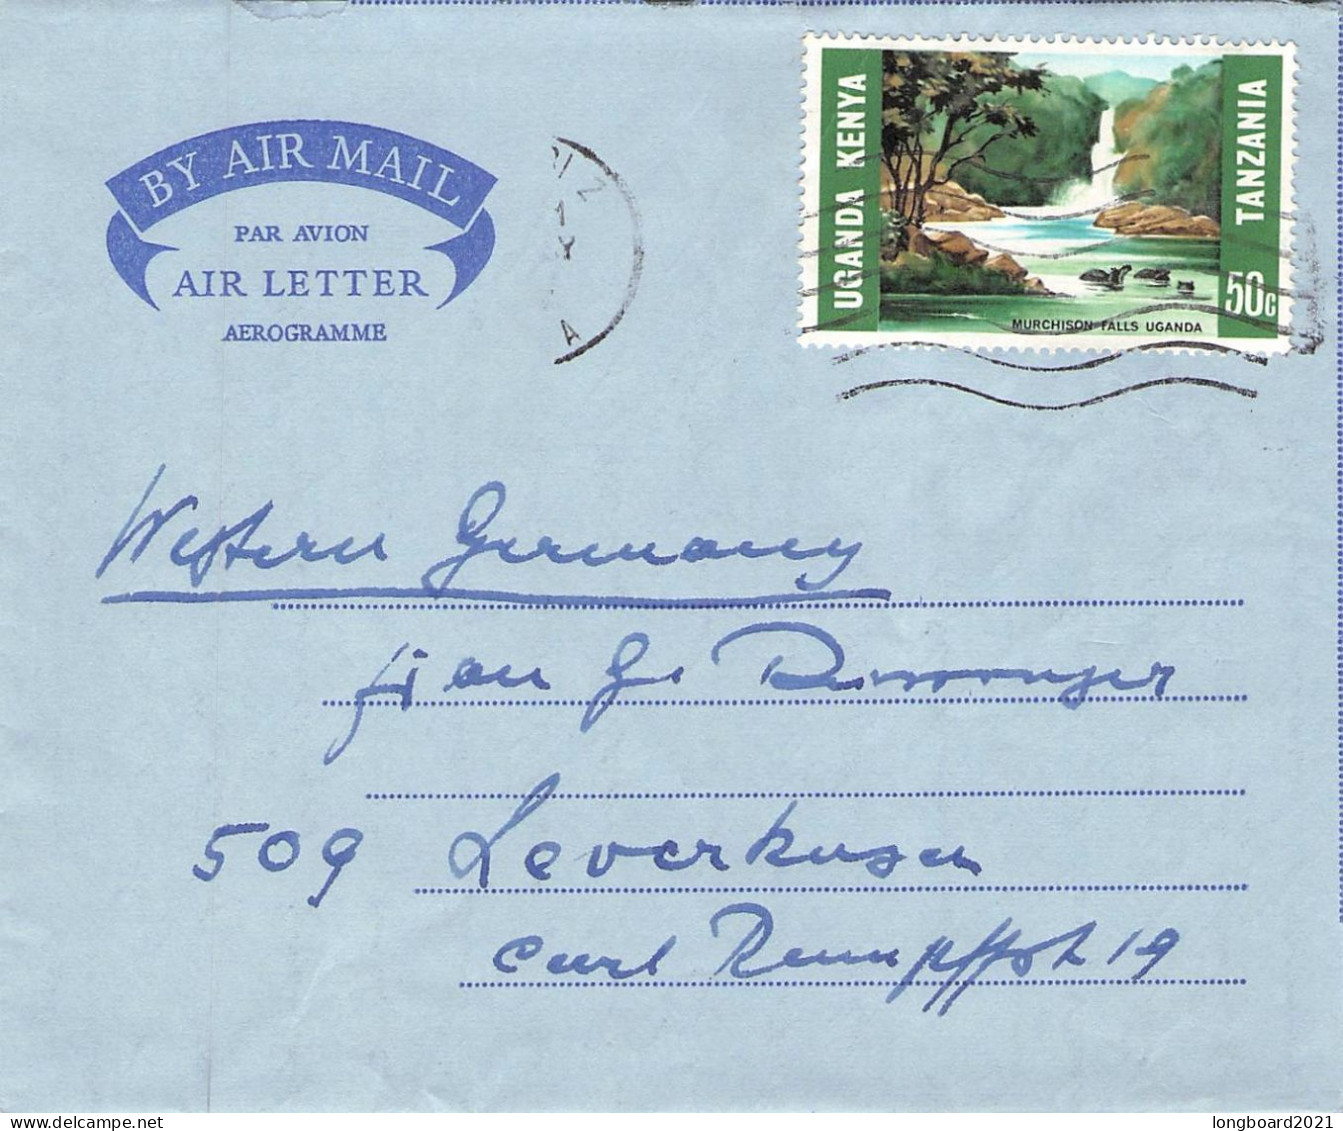 BY AIR MAIL
PAR AVION
AIR LETTER
AEROGRAMME
UGANDA KENYA
TANZANIA
50c
MURCHISON FALLS UGANDA
1
A
Western Germany
G.
509 Leverkusen
Carl 19
longboard2021